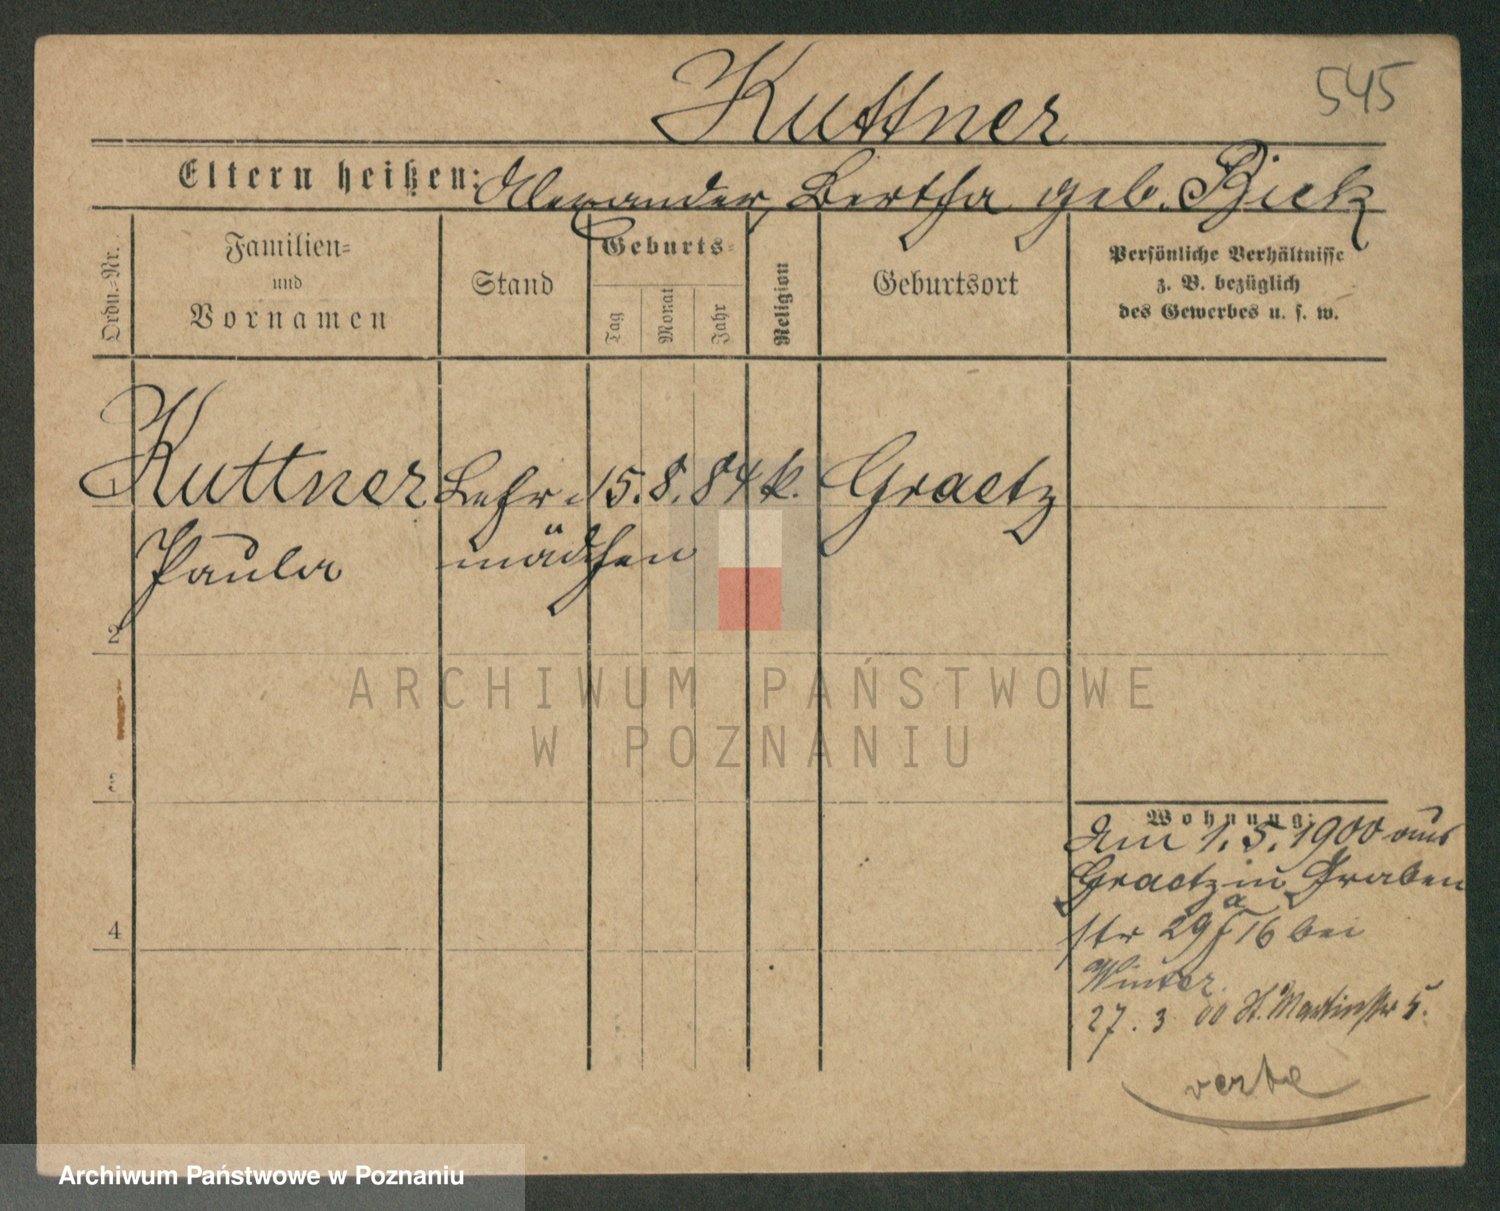 545
Kuttner
Eltern heißen: Alexander, Bertha geb. Bick
Ordn.=Nr.
Familien=
und
Vornamen
Stand
Geburts=
Tag
Monat
Jahr
Religion
Geburtsort
Persönliche Verhältnisse
z. B. bezüglich
des Gewerbes u. s. w.
1
Kuttner Lehr= 15. 8. 84 k. Graetz
Paula mädchen
2
3
4
ARCHIWUM PAŃSTWOWE
W POZNANIU
Wohnung:
Am 1. 5. 1900 aus
Graetz in Graben
str 29a 16 bei
Winter.
27. 3 00 St. Martinstr 5.
verte
Archiwum Państwowe w Poznaniu